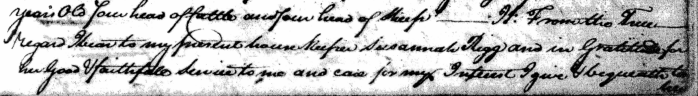 years Old four head of Cattle and four head of Sheep It: From the True
regard I bear to my present house keeper Susannah Rigg and in Gratitude for
her Good & faithfull Service to me and care for my Interest I give & bequeath to
her